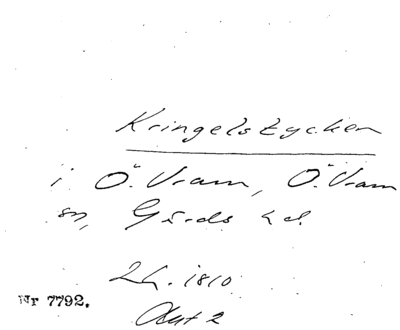 Kringelstycken
i Ö. Vram, Ö. Vram
sn, Gärds hd.
1810
Nr 7792.
Akt 2